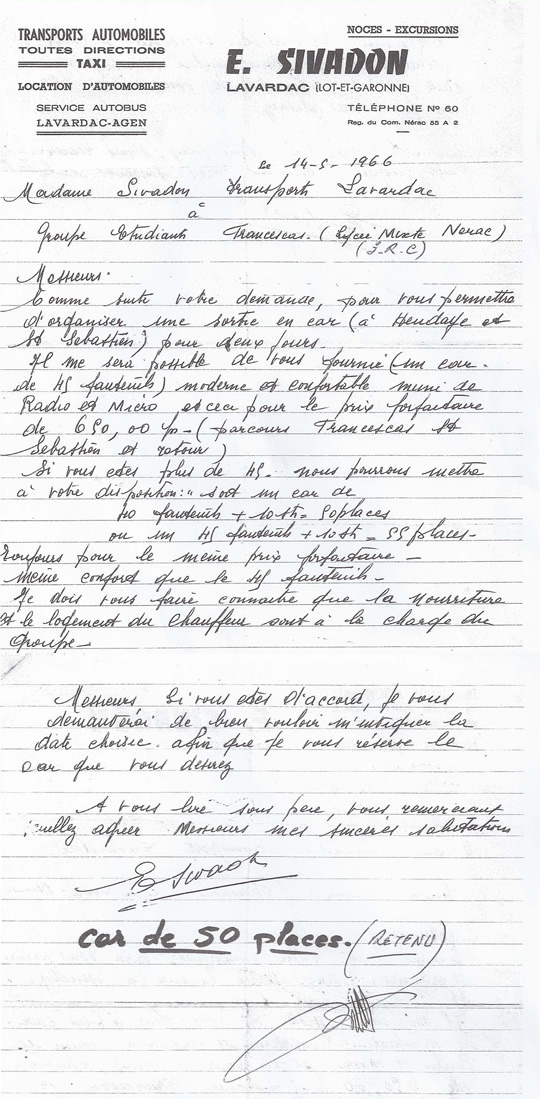 TRANSPORTS AUTOMOBILES
TOUTES DIRECTIONS
TAXI
LOCATION D'AUTOMOBILES
SERVICE AUTOBUS
LAVARDAC-AGEN
NOCES - EXCURSIONS
E. SIVADON
LAVARDAC (LOT-ET-GARONNE)
TÉLÉPHONE Nº 60
Reg. du Com. Nérac 55 A 2
Le 14-5-1966
Madame Sivadon Transports Lavardac
à
Groupe Etudiants Francescas. (Lycée Mixte Nerac)
(J.R.C)
Messieurs.
Comme suite votre demande, pour vous permettre
d'organiser une sortie en car (à Hendaye et
St Sebastien) pour deux jours.
Il me sera possible de vous fournir (un car.
de 45 fauteuils) moderne et confortable muni de
Radio et Micro et ceci pour le prix forfaitaire
de 650,00 - (parcours Francescas St
Sebastien et retour)
Si vous etes plus de 45. nous pourrons mettre
à votre disposition: soit un car de
40 fauteuils + 10 = 50 places
ou un 45 fauteuils + 10 = 55 places-
Toujours pour le même prix forfaitaire -
même confort que le 45 fauteuils-
Je dois vous faire connaitre que la nourriture
et le logement du chauffeur sont à la charge du
Groupe-
Messieurs Si vous etes d'accord, je vous
demanderai de bien vouloir m'indiquer la
date choisie. afin que je vous réserve le
car que vous desirez
A vous lire sous peu, vous remerciant
veuillez agréer Messieurs mes sincères salutations
E Sivadon
car de 50 places. (RETENU)